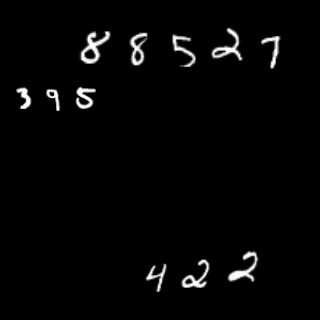 88527
395
422